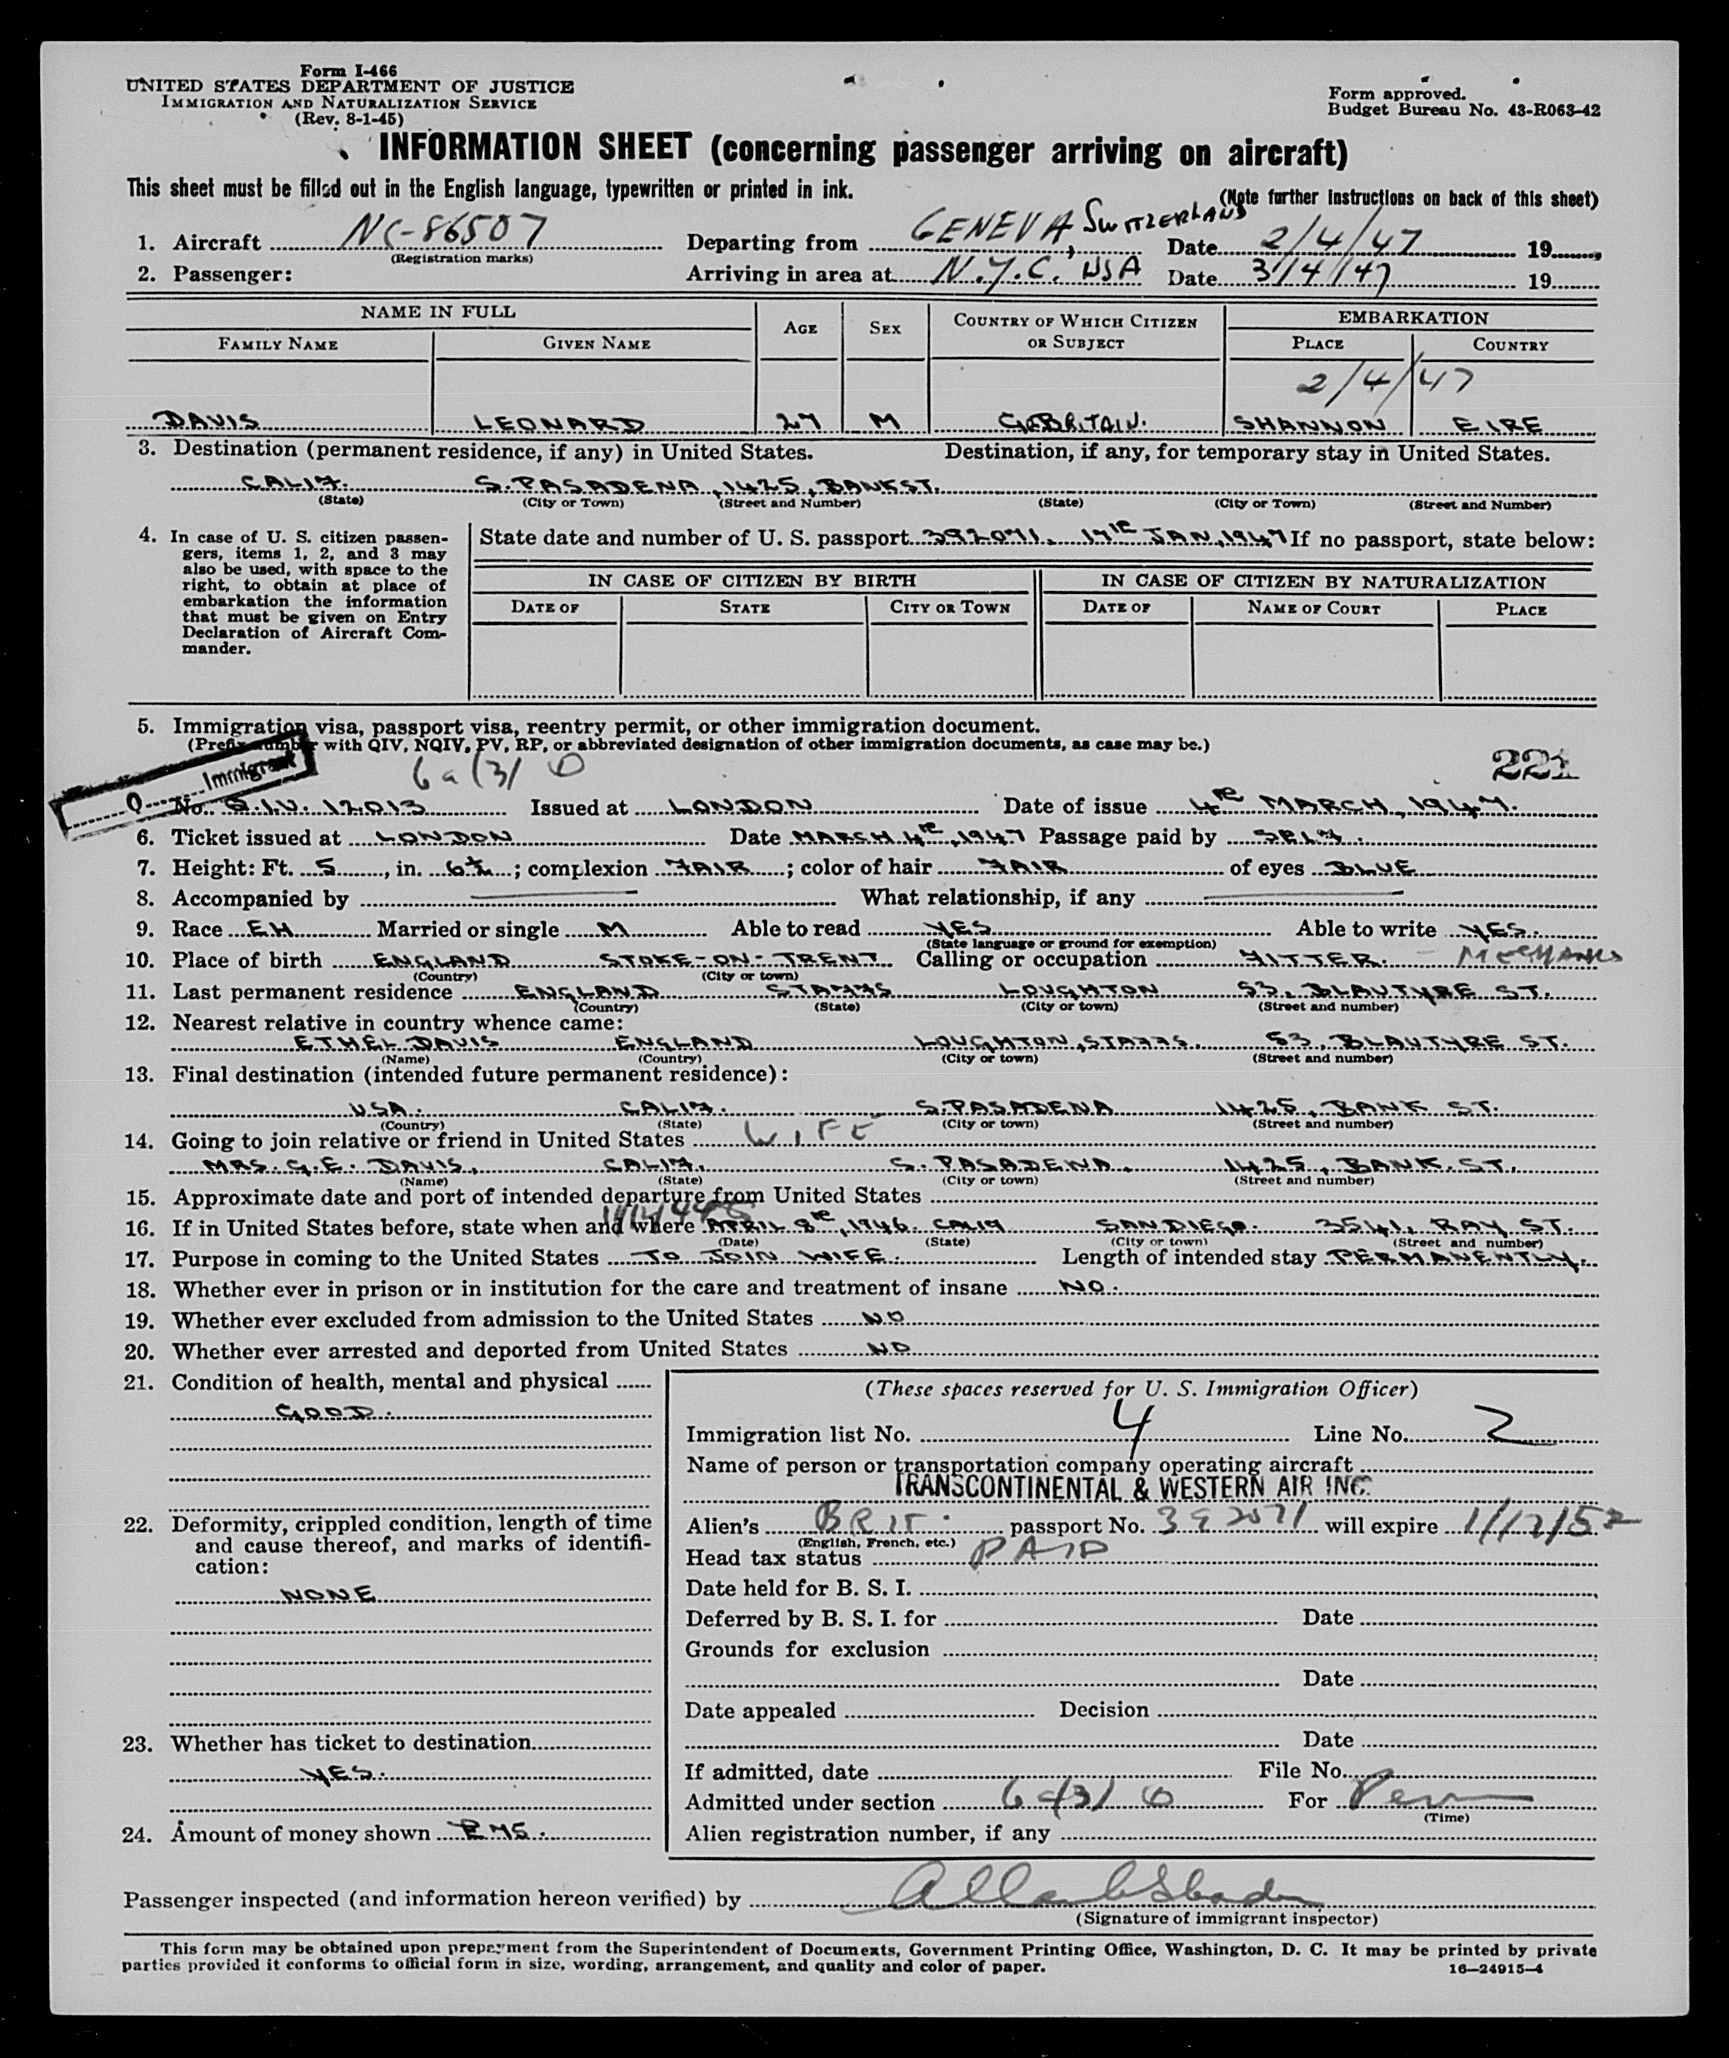 Form I-466
UNITED STATES DEPARTMENT OF JUSTICE
IMMIGRATION AND NATURALIZATION SERVICE
(Rev. 8-1-45)
Form approved.
Budget Bureau No. 43-R063-42
INFORMATION SHEET (concerning passenger arriving on aircraft)
This sheet must be filled out in the English language, typewritten or printed in ink.
(Note further instructions on back of this sheet)
1. Aircraft NC-86507 Departing from GENEVA, SWITZERLAND Date 2/4/47 19
(Registration marks)
2. Passenger: Arriving in area at N.Y.C. USA Date 3/4/47 19
NAME IN FULL AGE SEX COUNTRY OF WHICH CITIZEN OR SUBJECT EMBARKATION
FAMILY NAME GIVEN NAME PLACE COUNTRY
2/4/47
DAVIS LEONARD 27 M GT BRITAIN. SHANNON EIRE
3. Destination (permanent residence, if any) in United States. Destination, if any, for temporary stay in United States.
CALIF. S. PASADENA, 1425, BANK ST.
(State) (City or Town) (Street and Number) (State) (City or Town) (Street and Number)
4. In case of U. S. citizen passengers, items 1, 2, and 3 may also be used, with space to the right, to obtain at place of embarkation the information that must be given on Entry Declaration of Aircraft Commander.
State date and number of U. S. passport 392071. 17TH JAN, 1947 If no passport, state below:
IN CASE OF CITIZEN BY BIRTH IN CASE OF CITIZEN BY NATURALIZATION
DATE OF STATE CITY OR TOWN DATE OF NAME OF COURT PLACE
5. Immigration visa, passport visa, reentry permit, or other immigration document.
(Prefix number with QIV, NQIV, PV, RP, or abbreviated designation of other immigration documents, as case may be.)
Q Immigrant
6a(3) O
221
No. Q.I.V. 12013 Issued at LONDON Date of issue 4TH MARCH, 1947.
6. Ticket issued at LONDON Date MARCH 4TH, 1947 Passage paid by SELF.
7. Height: Ft. 5, in. 6½; complexion FAIR; color of hair FAIR of eyes BLUE
8. Accompanied by — What relationship, if any —
9. Race EH Married or single M Able to read YES Able to write YES.
(State language or ground for exemption)
10. Place of birth ENGLAND STOKE-ON-TRENT Calling or occupation FITTER. - MECHANIC
(Country) (City or town)
11. Last permanent residence ENGLAND STAFFS LOUGHTON 53, BLAUTYRE ST.
(Country) (State) (City or town) (Street and number)
12. Nearest relative in country whence came:
ETHEL DAVIS ENGLAND LOUGHTON, STAFFS. 53, BLAUTYRE ST.
(Name) (Country) (City or town) (Street and number)
13. Final destination (intended future permanent residence):
USA. CALIF. S. PASADENA 1425, BANK ST.
(Country) (State) (City or town) (Street and number)
14. Going to join relative or friend in United States WIFE
MRS. G.E. DAVIS, CALIF. S. PASADENA, 1425, BANK. ST.
(Name) (State) (City or town) (Street and number)
15. Approximate date and port of intended departure from United States
16. If in United States before, state when and where APRIL 8TH, 1946. CALIF SAN DIEGO. 3541, RAY ST.
(Date) (State) (City or town) (Street and number)
17. Purpose in coming to the United States TO JOIN WIFE. Length of intended stay PERMANENTLY.
18. Whether ever in prison or in institution for the care and treatment of insane NO.
19. Whether ever excluded from admission to the United States NO
20. Whether ever arrested and deported from United States NO
21. Condition of health, mental and physical
GOOD.
22. Deformity, crippled condition, length of time and cause thereof, and marks of identification:
NONE
23. Whether has ticket to destination
YES.
24. Amount of money shown
(These spaces reserved for U. S. Immigration Officer)
Immigration list No. 4 Line No. 2
Name of person or transportation company operating aircraft
TRANSCONTINENTAL & WESTERN AIR INC.
Alien's BRIT. passport No. 392071 will expire 1/17/52
(English, French, etc.)
Head tax status PAID
Date held for B. S. I.
Deferred by B. S. I. for Date
Grounds for exclusion
Date
Date appealed Decision
Date
If admitted, date File No.
Admitted under section 6a(3) O For Perm
(Time)
Alien registration number, if any
Passenger inspected (and information hereon verified) by
(Signature of immigrant inspector)
This form may be obtained upon prepayment from the Superintendent of Documents, Government Printing Office, Washington, D. C. It may be printed by private
parties provided it conforms to official form in size, wording, arrangement, and quality and color of paper.
16—24915-4